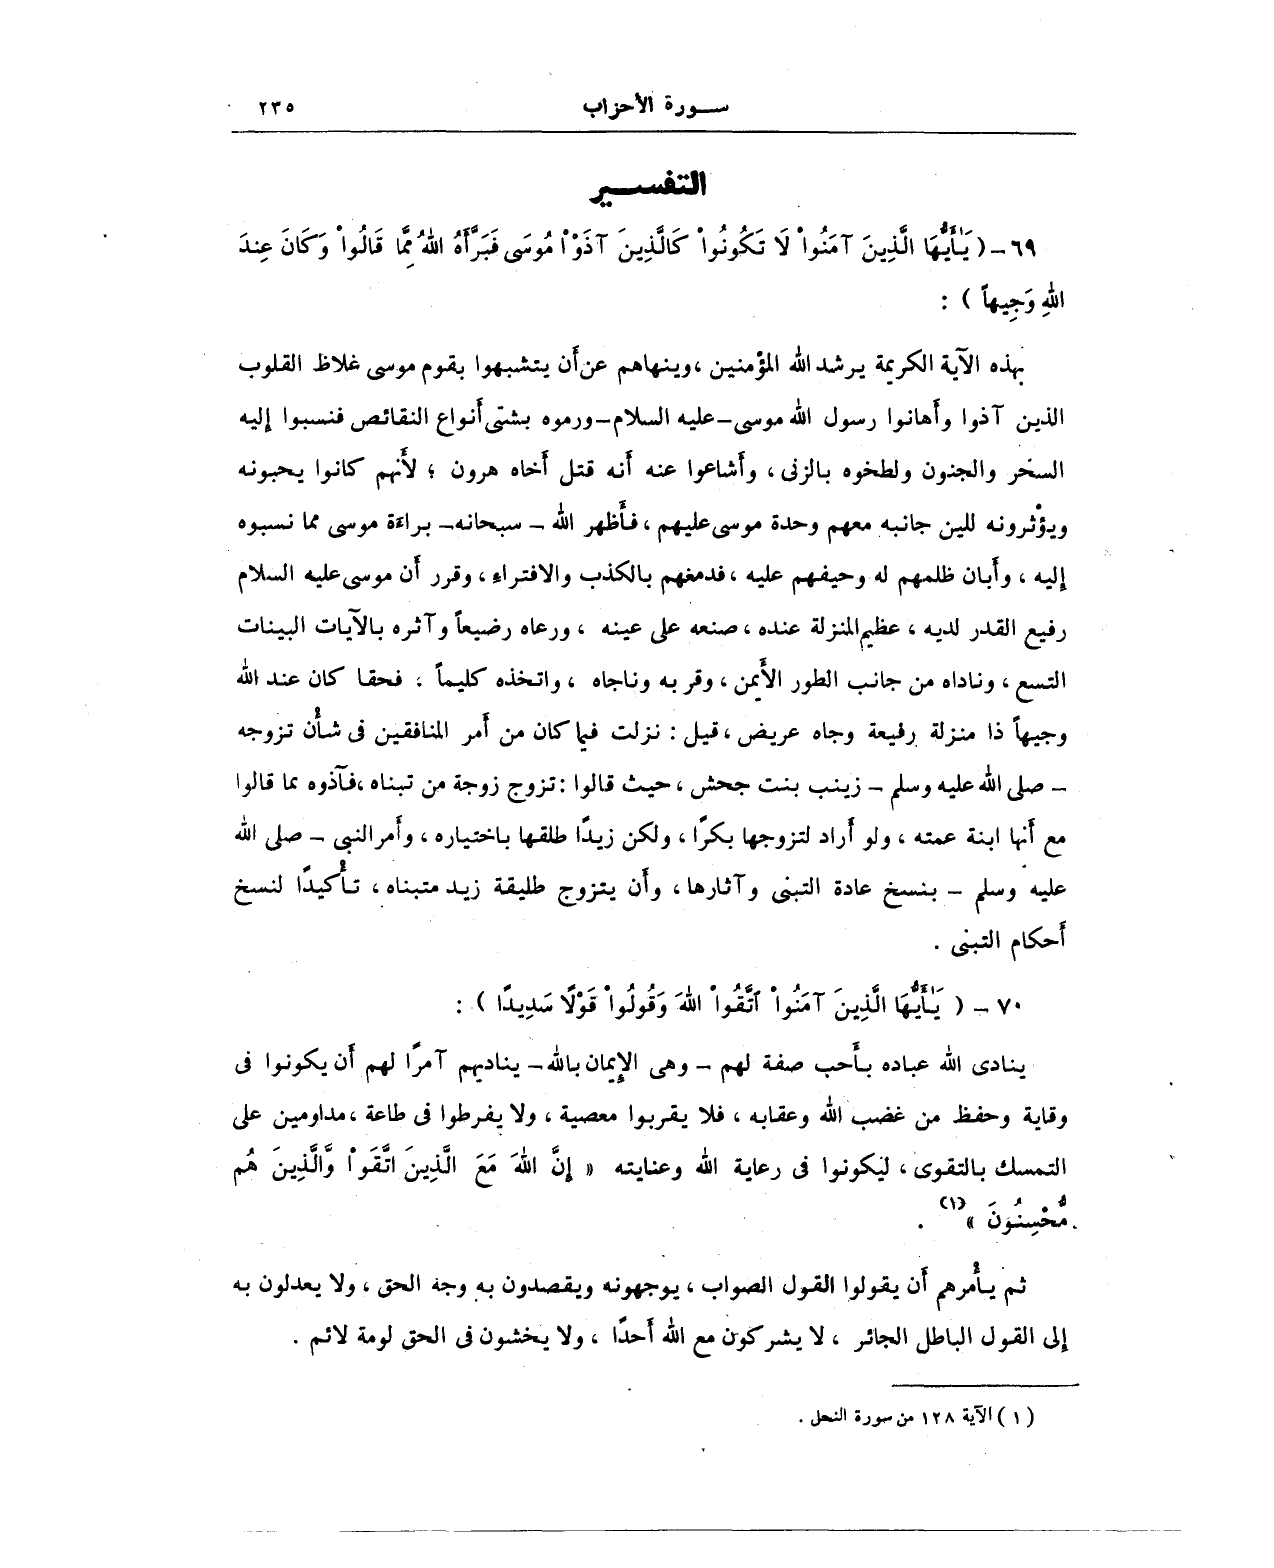 سورة الأحزاب ٢٣٥
التفسير
٦٩ - ( يَٰأَيُّهَا الَّذِينَ آمَنُواْ لَا تَكُونُواْ كَالَّذِينَ آذَوْاْ مُوسَى فَبَرَّأَهُ اللهُ مِمَّا قَالُواْ وَكَانَ عِندَ
اللهِ وَجِيهاً ) :
بهذه الآية الكريمة يرشد الله المؤمنين ، وينهاهم عن أن يتشبهوا بقوم موسى غلاظ القلوب
الذين آذوا وأهانوا رسول الله موسى - عليه السلام - ورموه بشتى أنواع النقائص فنسبوا إليه
السحر والجنون ولطخوه بالزنى ، وأشاعوا عنه أنه قتل أخاه هرون ؛ لأنهم كانوا يحبونه
ويؤثرونه للين جانبه معهم وحدة موسى عليهم ، فأظهر الله - سبحانه - براءة موسى مما نسبوه
إليه ، وأبان ظلمهم له وحيفهم عليه ، فدمغهم بالكذب والافتراء ، وقرر أن موسى عليه السلام
رفيع القدر لديه ، عظيم المنزلة عنده ، صنعه على عينه ، ورعاه رضيعاً وآثره بالآيات البينات
التسع ، وناداه من جانب الطور الأيمن ، وقربه وناجاه ، واتخذه كليماً . فحقا كان عند الله
وجيهاً ذا منزلة رفيعة وجاه عريض ، قيل : نزلت فيما كان من أمر المنافقين فى شأن تزوجه
- صلى الله عليه وسلم - زينب بنت جحش ، حيث قالوا : تزوج زوجة من تبناه ، فآذوه بما قالوا
مع أنها ابنة عمته ، ولو أراد لتزوجها بكرًا ، ولكن زيدًا طلقها باختياره ، وأمر النبى - صلى الله
عليه وسلم - بنسخ عادة التبنى وآثارها ، وأن يتزوج طليقة زيد متبناه ، تأكيدًا لنسخ
أحكام التبنى .
٧٠ - ( يَٰأَيُّهَا الَّذِينَ آمَنُواْ ٱتَّقُواْ اللهَ وَقُولُواْ قَوْلًا سَدِيدًا ) :
ينادى الله عباده بأحب صفة لهم - وهى الإيمان بالله - يناديهم آمرًا لهم أن يكونوا فى
وقاية وحفظ من غضب الله وعقابه ، فلا يقربوا معصية ، ولا يفرطوا فى طاعة ، مداومين على
التمسك بالتقوى ، ليكونوا فى رعاية الله وعنايته « إِنَّ اللهَ مَعَ الَّذِينَ اتَّقَواْ وَّالَّذِينَ هُم
مُّحْسِنُونَ » (١) .
ثم يأمرهم أن يقولوا القول الصواب ، يوجهونه ويقصدون به وجه الحق ، ولا يعدلون به
إلى القول الباطل الجائر ، لا يشركون مع الله أحدًا ، ولا يخشون فى الحق لومة لائم .
( ١ ) الآية ١٢٨ من سورة النحل .